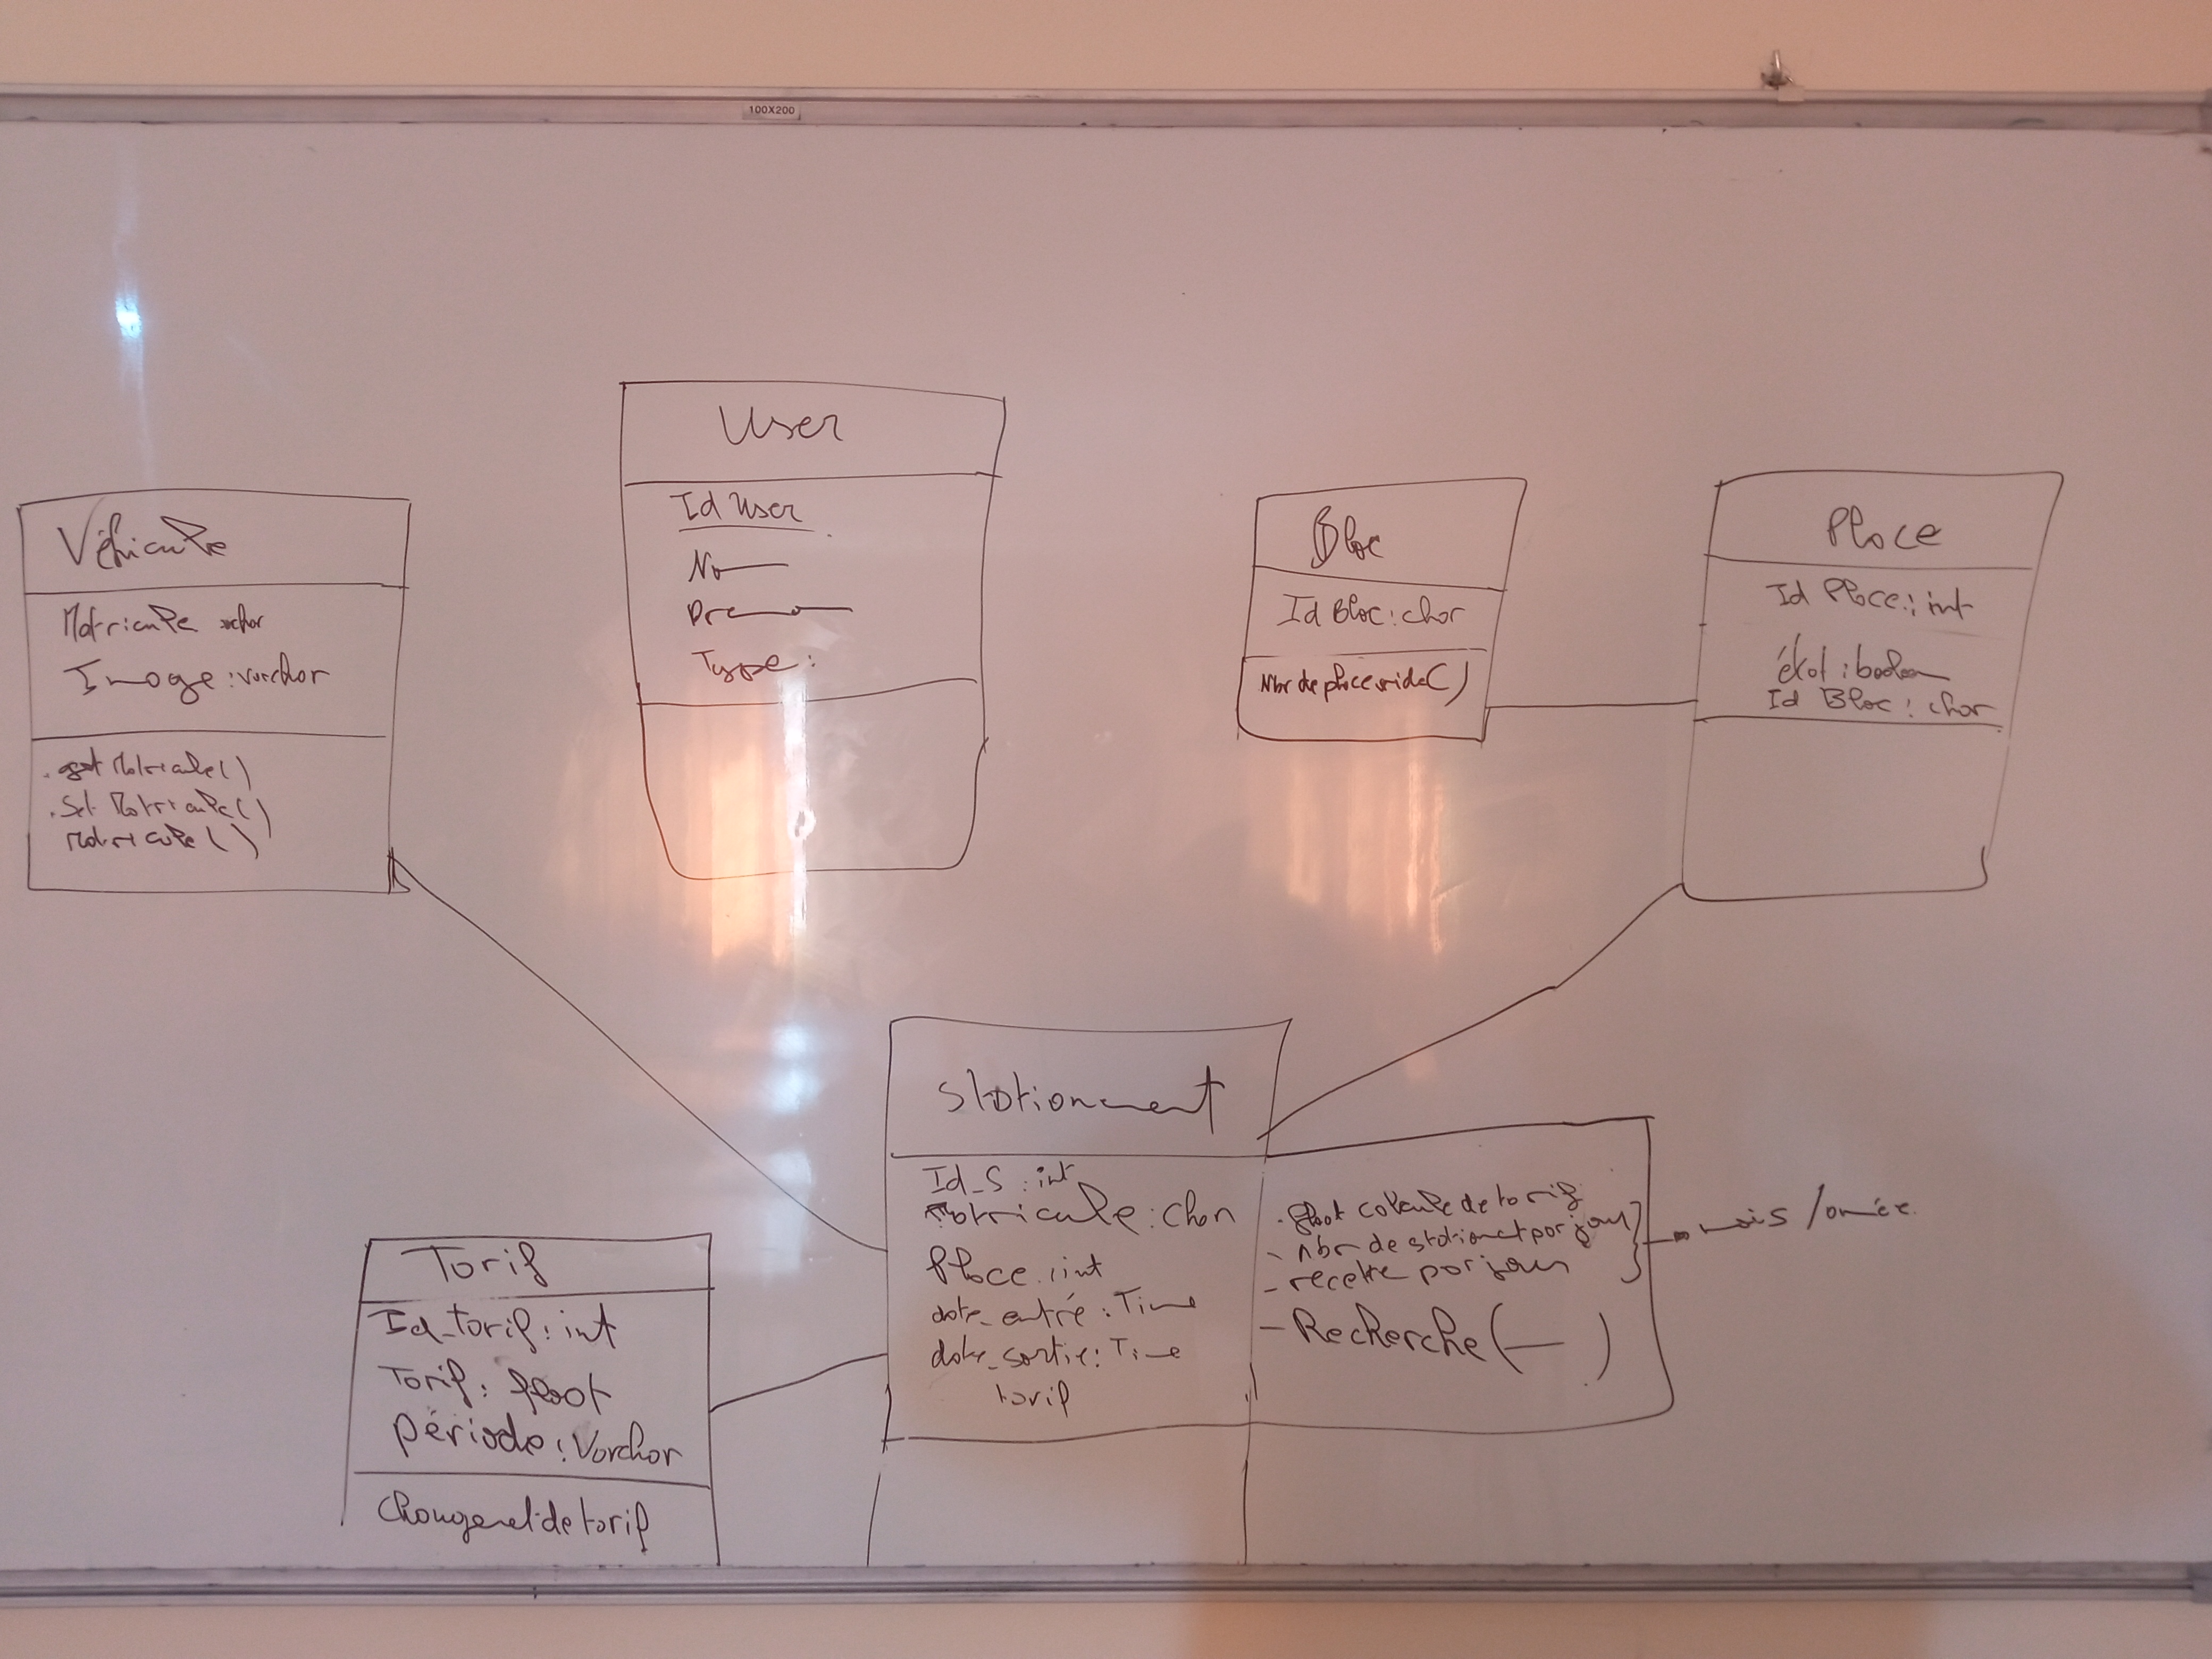 100X200
User
Id User
No
Pre
Type :
Véhicule
Matricule : char
Image : varchar
. get Matricule ( )
. Set Matricule ( )
Matricule ( )
Bloc
Id Bloc : char
Nbr de place vide ( )
Place
Id Place : int
état : boolean
Id Bloc : char
Stationment
Id_S : int
Matricule : char
Place : int
date_entré : Time
date_sortie : Time
tarif
- float calcule de tarif
- nbr de stationet par jour
- recette par jour
mois / année
- Recherche ( — )
Tarif
Id_tarif : int
Tarif : float
période : Varchar
Changenet de tarif